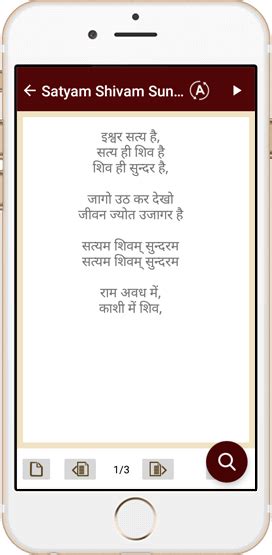 Satyam Shivam Sun...
इश्वर सत्य है,
सत्य ही शिव है
शिव ही सुन्दर है,
जागो उठ कर देखो
जीवन ज्योत उजागर है
सत्यम शिवम् सुन्दरम
सत्यम शिवम् सुन्दरम
राम अवध में,
काशी में शिव,
1/3